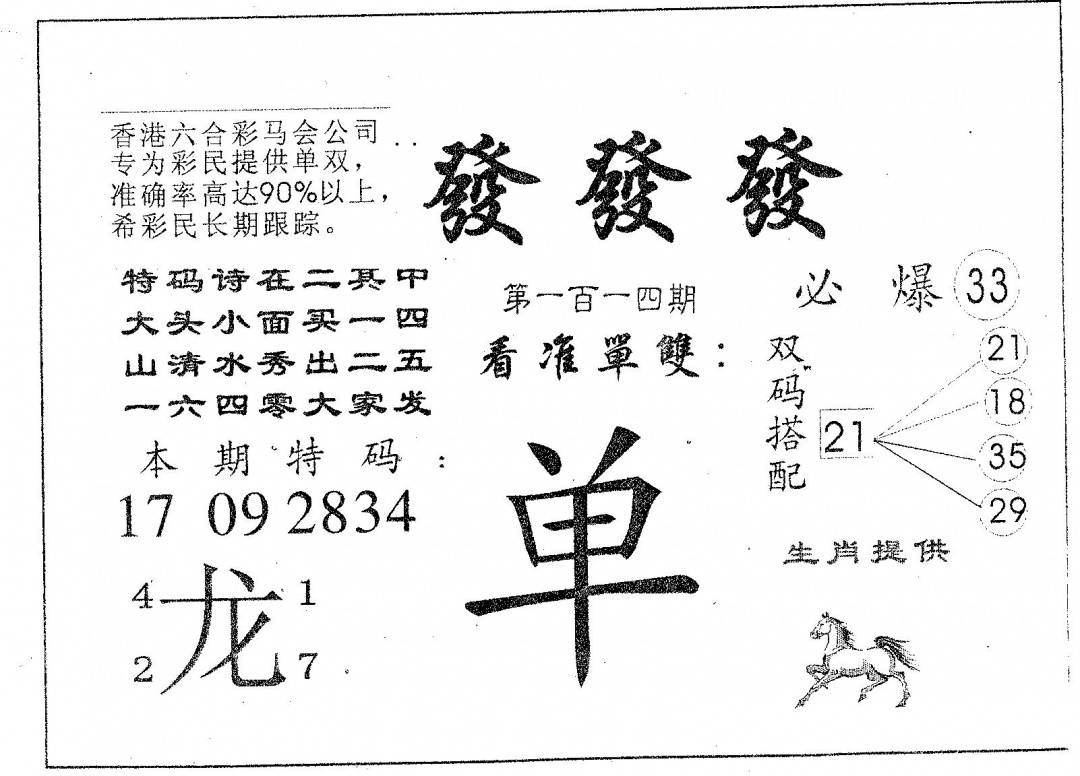 香港六合彩马会公司
专为彩民提供单双，
准确率高达90%以上，
希彩民长期跟踪。
發發發
特码诗在二其中
大头小面买一四
山清水秀出二五
一六四零大家发
第一百一四期
看准單雙：
必爆 33
双码搭配
21
21
18
35
29
本期特码：
17 09 2834
4 龙 1
2 7
单
生肖提供